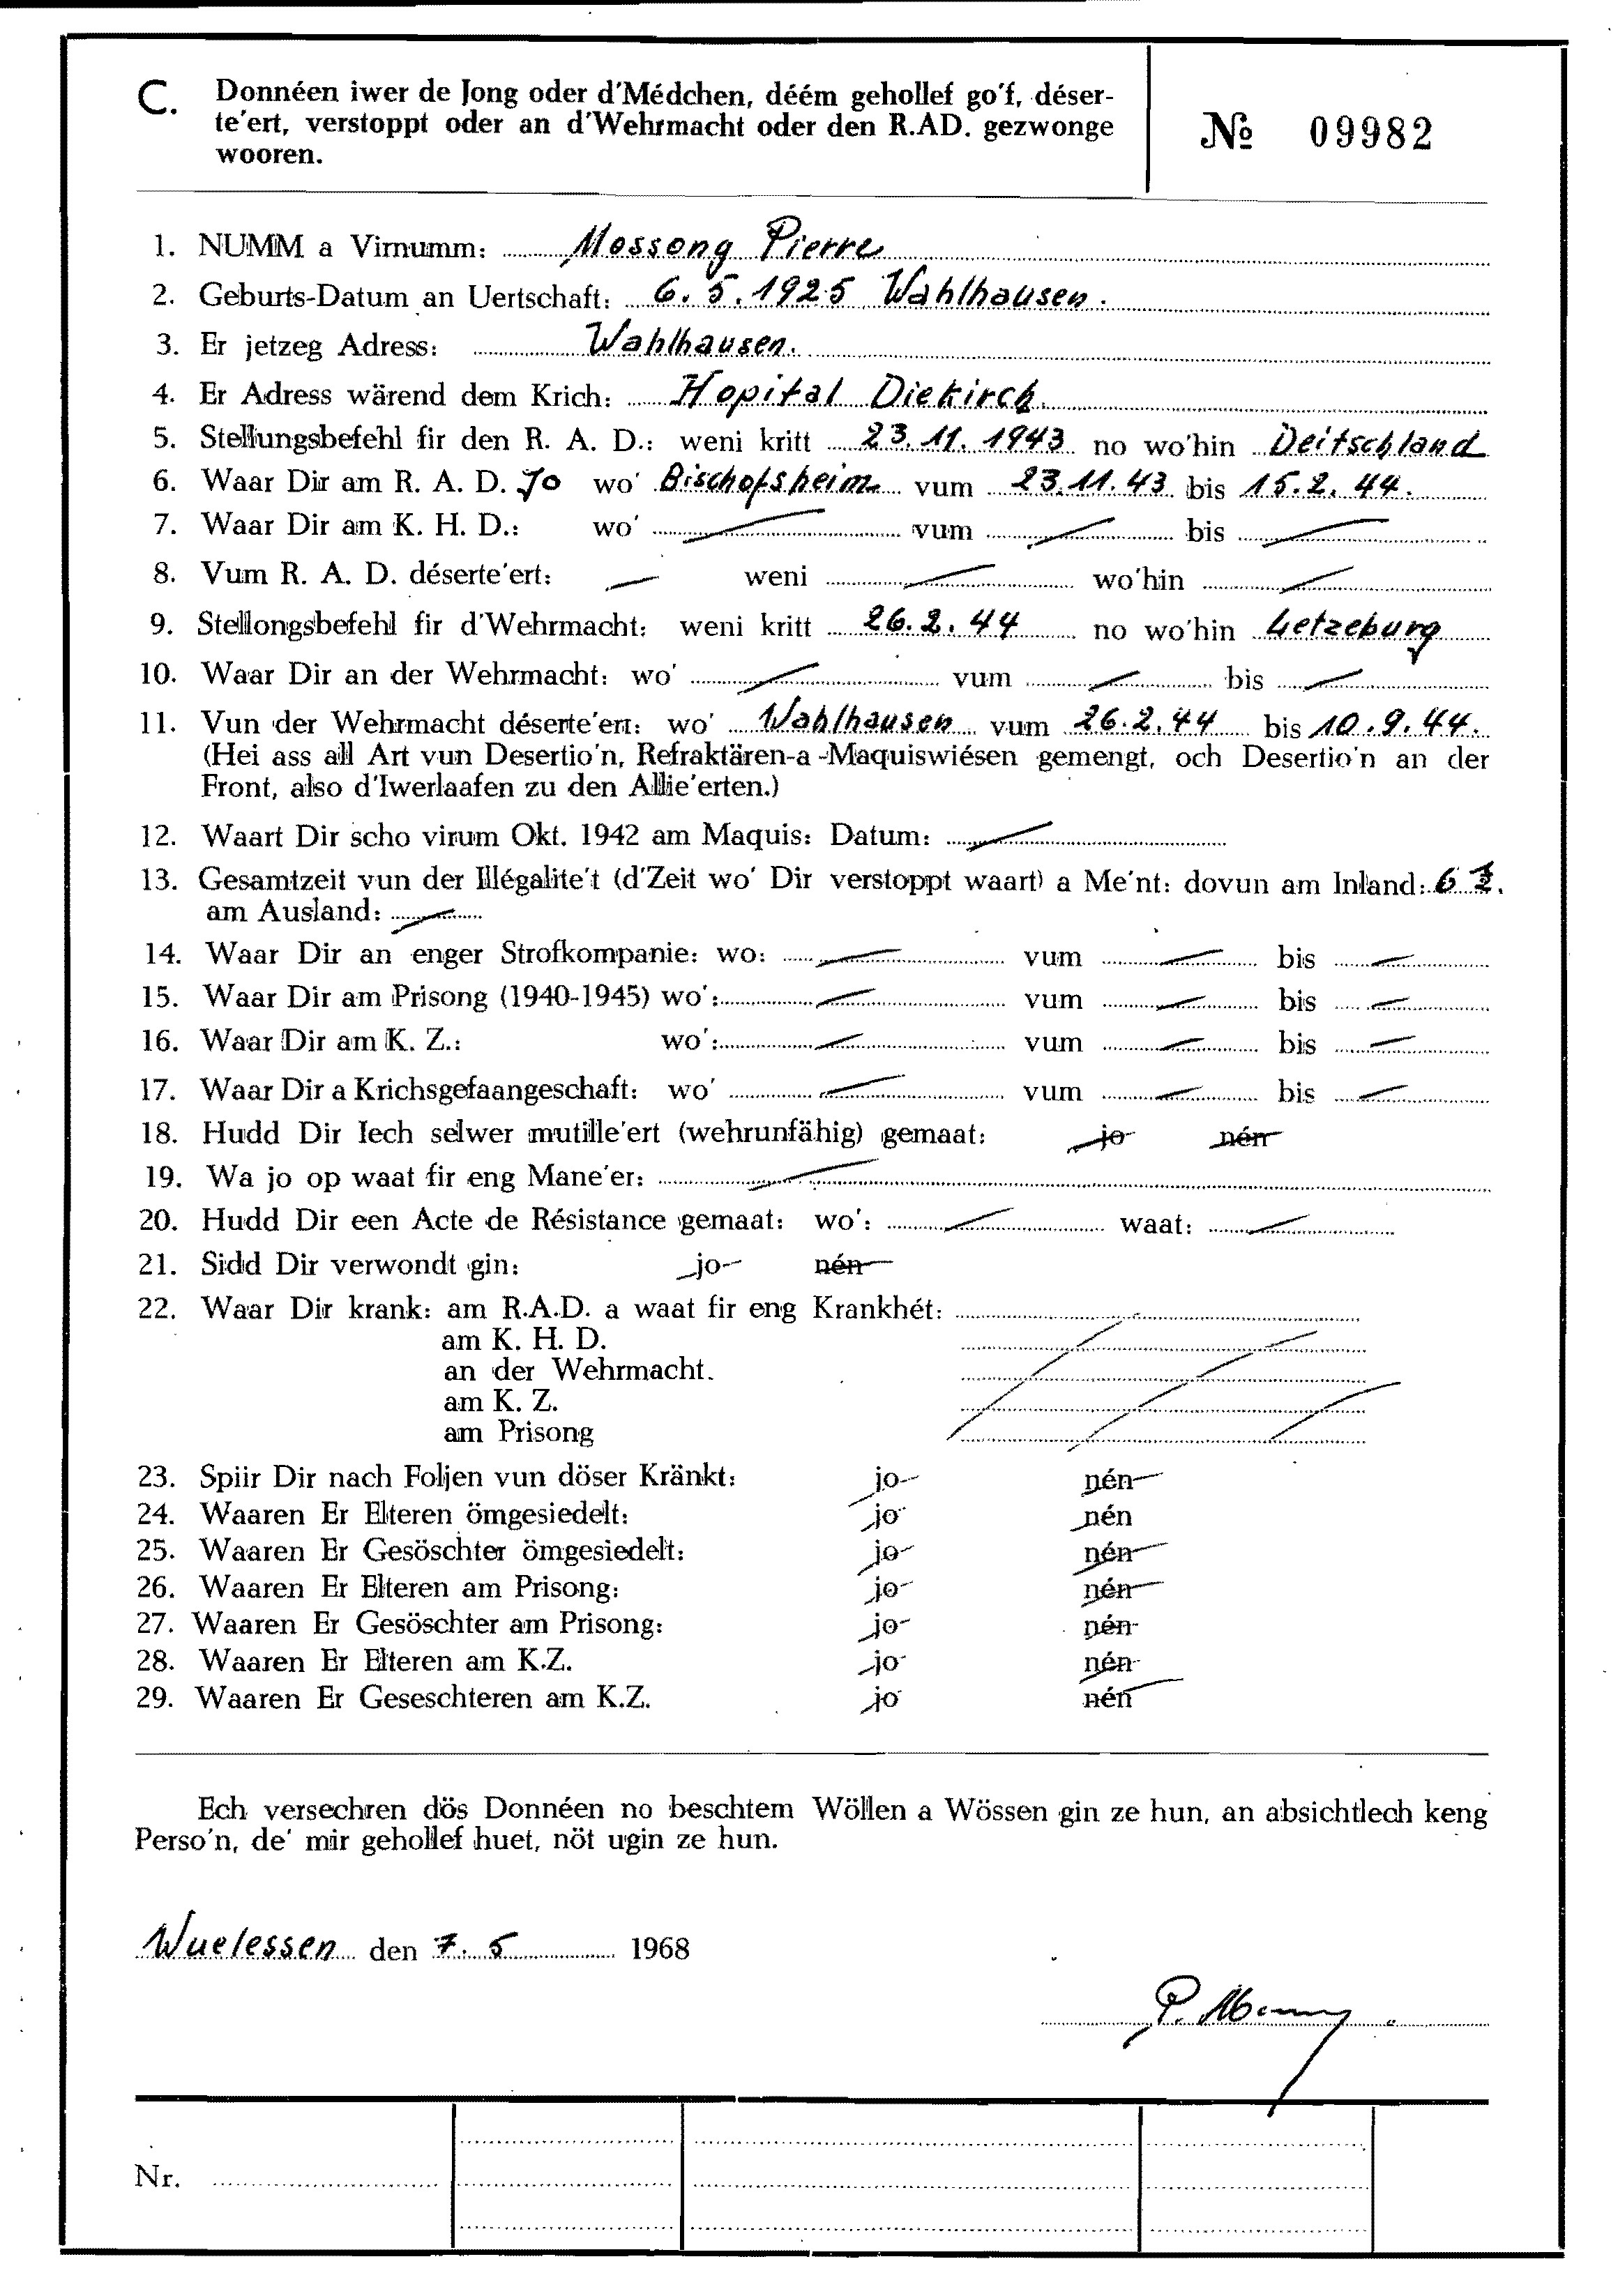 C. Donnéen iwer de Jong oder d'Médchen, déém gehollef go'f, déser-
te'ert, verstoppt oder an d'Wehrmacht oder den R.AD. gezwonge
wooren.
№ 09982
1. NUMM a Virnumm: Mossong Pierre
2. Geburts-Datum an Uertschaft: 6. 5. 1925 Wahlhausen.
3. Er jetzeg Adress: Wahlhausen.
4. Er Adress wärend dem Krich: Hopital Diekirch.
5. Stellungsbefehl fir den R. A. D.: weni kritt 23. 11. 1943 no wo'hin Deitschland
6. Waar Dir am R. A. D. Jo wo' Bischofsheim vum 23.11.43 bis 15.2.44.
7. Waar Dir am K. H. D.: wo' — vum — bis —
8. Vum R. A. D. déserte'ert: — weni — wo'hin —
9. Stellongsbefehl fir d'Wehrmacht: weni kritt 26.2.44 no wo'hin Letzeburg
10. Waar Dir an der Wehrmacht: wo' — vum — bis —
11. Vun der Wehrmacht déserte'ert: wo' Wahlhausen vum 26.2.44 bis 10.9.44.
(Hei ass all Art vun Desertio'n, Refraktären-a -Maquiswiésen gemengt, och Desertio'n an der
Front, also d'Iwerlaafen zu den Allie'erten.)
12. Waart Dir scho virum Okt. 1942 am Maquis: Datum: —
13. Gesamtzeit vun der Illégalite't (d'Zeit wo' Dir verstoppt waart) a Me'nt: dovun am Inland: 6 ½.
am Ausland: —
14. Waar Dir an enger Strofkompanie: wo: — vum — bis —
15. Waar Dir am Prisong (1940-1945) wo': — vum — bis —
16. Waar Dir am K. Z.: wo': — vum — bis —
17. Waar Dir a Krichsgefaangeschaft: wo' — vum — bis —
18. Hudd Dir Iech selwer mutille'ert (wehrunfähig) gemaat: jo nén
19. Wa jo op waat fir eng Mane'er: —
20. Hudd Dir een Acte de Résistance gemaat: wo': — waat: —
21. Sidd Dir verwondt gin: jo nén
22. Waar Dir krank: am R.A.D. a waat fir eng Krankhét:
am K. H. D.
an der Wehrmacht.
am K. Z.
am Prisong
23. Spiir Dir nach Foljen vun döser Kränkt: jo nén
24. Waaren Er Elteren ömgesiedelt: jo nén
25. Waaren Er Gesöschter ömgesiedelt: jo nén
26. Waaren Er Elteren am Prisong: jo nén
27. Waaren Er Gesöschter am Prisong: jo nén
28. Waaren Er Elteren am K.Z. jo nén
29. Waaren Er Geseschteren am K.Z. jo nén
Ech versechren dös Donnéen no beschtem Wöllen a Wössen gin ze hun, an absichtlech keng
Perso'n, de' mir gehollef huet, nöt ugin ze hun.
Wuelessen den 7. 5 1968
Nr.